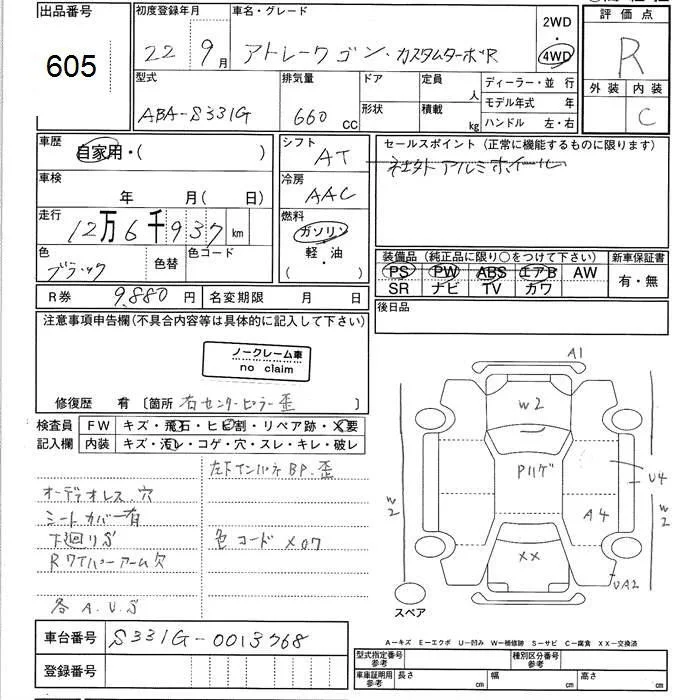 出品番号 初度登録年月 車名・グレード 2WD 評価点
605 22年 9月 アトレーワゴン・カスタムターボR ・ 4WD R
型式 排気量 ドア 定員 人 ディーラー・並行 外装 内装
ABA-S331G 660 CC 形状 積載 kg モデル年式 年 C
ハンドル 左・右
車歴 自家用・( ) シフト AT セールスポイント (正常に機能するものに限ります)
社外アルミホイール
車検 年 月(日) 冷房 AAC
走行 12万6千937km 燃料 ガソリン
軽・油
( )
色 ブラック 色替 色コード
装備品 (純正品に限り○をつけて下さい) 新車保証書
PS PW ABS エアB AW 有・無
SR ナビ TV カワ
R券 9,880円 名変期限 月 日 後日品
注意事項申告欄(不具合内容等は具体的に記入して下さい)
ノークレーム車
no claim
修復歴 有 〔箇所 右センターピラー歪 〕
検査員 FW キズ・飛石・ヒビ割・リペア跡・X要
記入欄 内装 キズ・汚レ・コゲ・穴・スレ・キレ・破レ
オーディオレス、穴
シートカバー有
下廻りS
RワイパーアームX
各A.U.S
色コードX07
A1
W2
Pハゲ
U4
W2
W2
A4
XX
UA2
スペア
車台番号 S331G-0013768
登録番号
A-キズ E-エクボ U-凹み W-補修跡 S-サビ C-腐食 XX-交換済
型式指定番号 参考 種別区分番号 参考
車庫証明用 参考 長さ cm 幅 cm 高さ cm